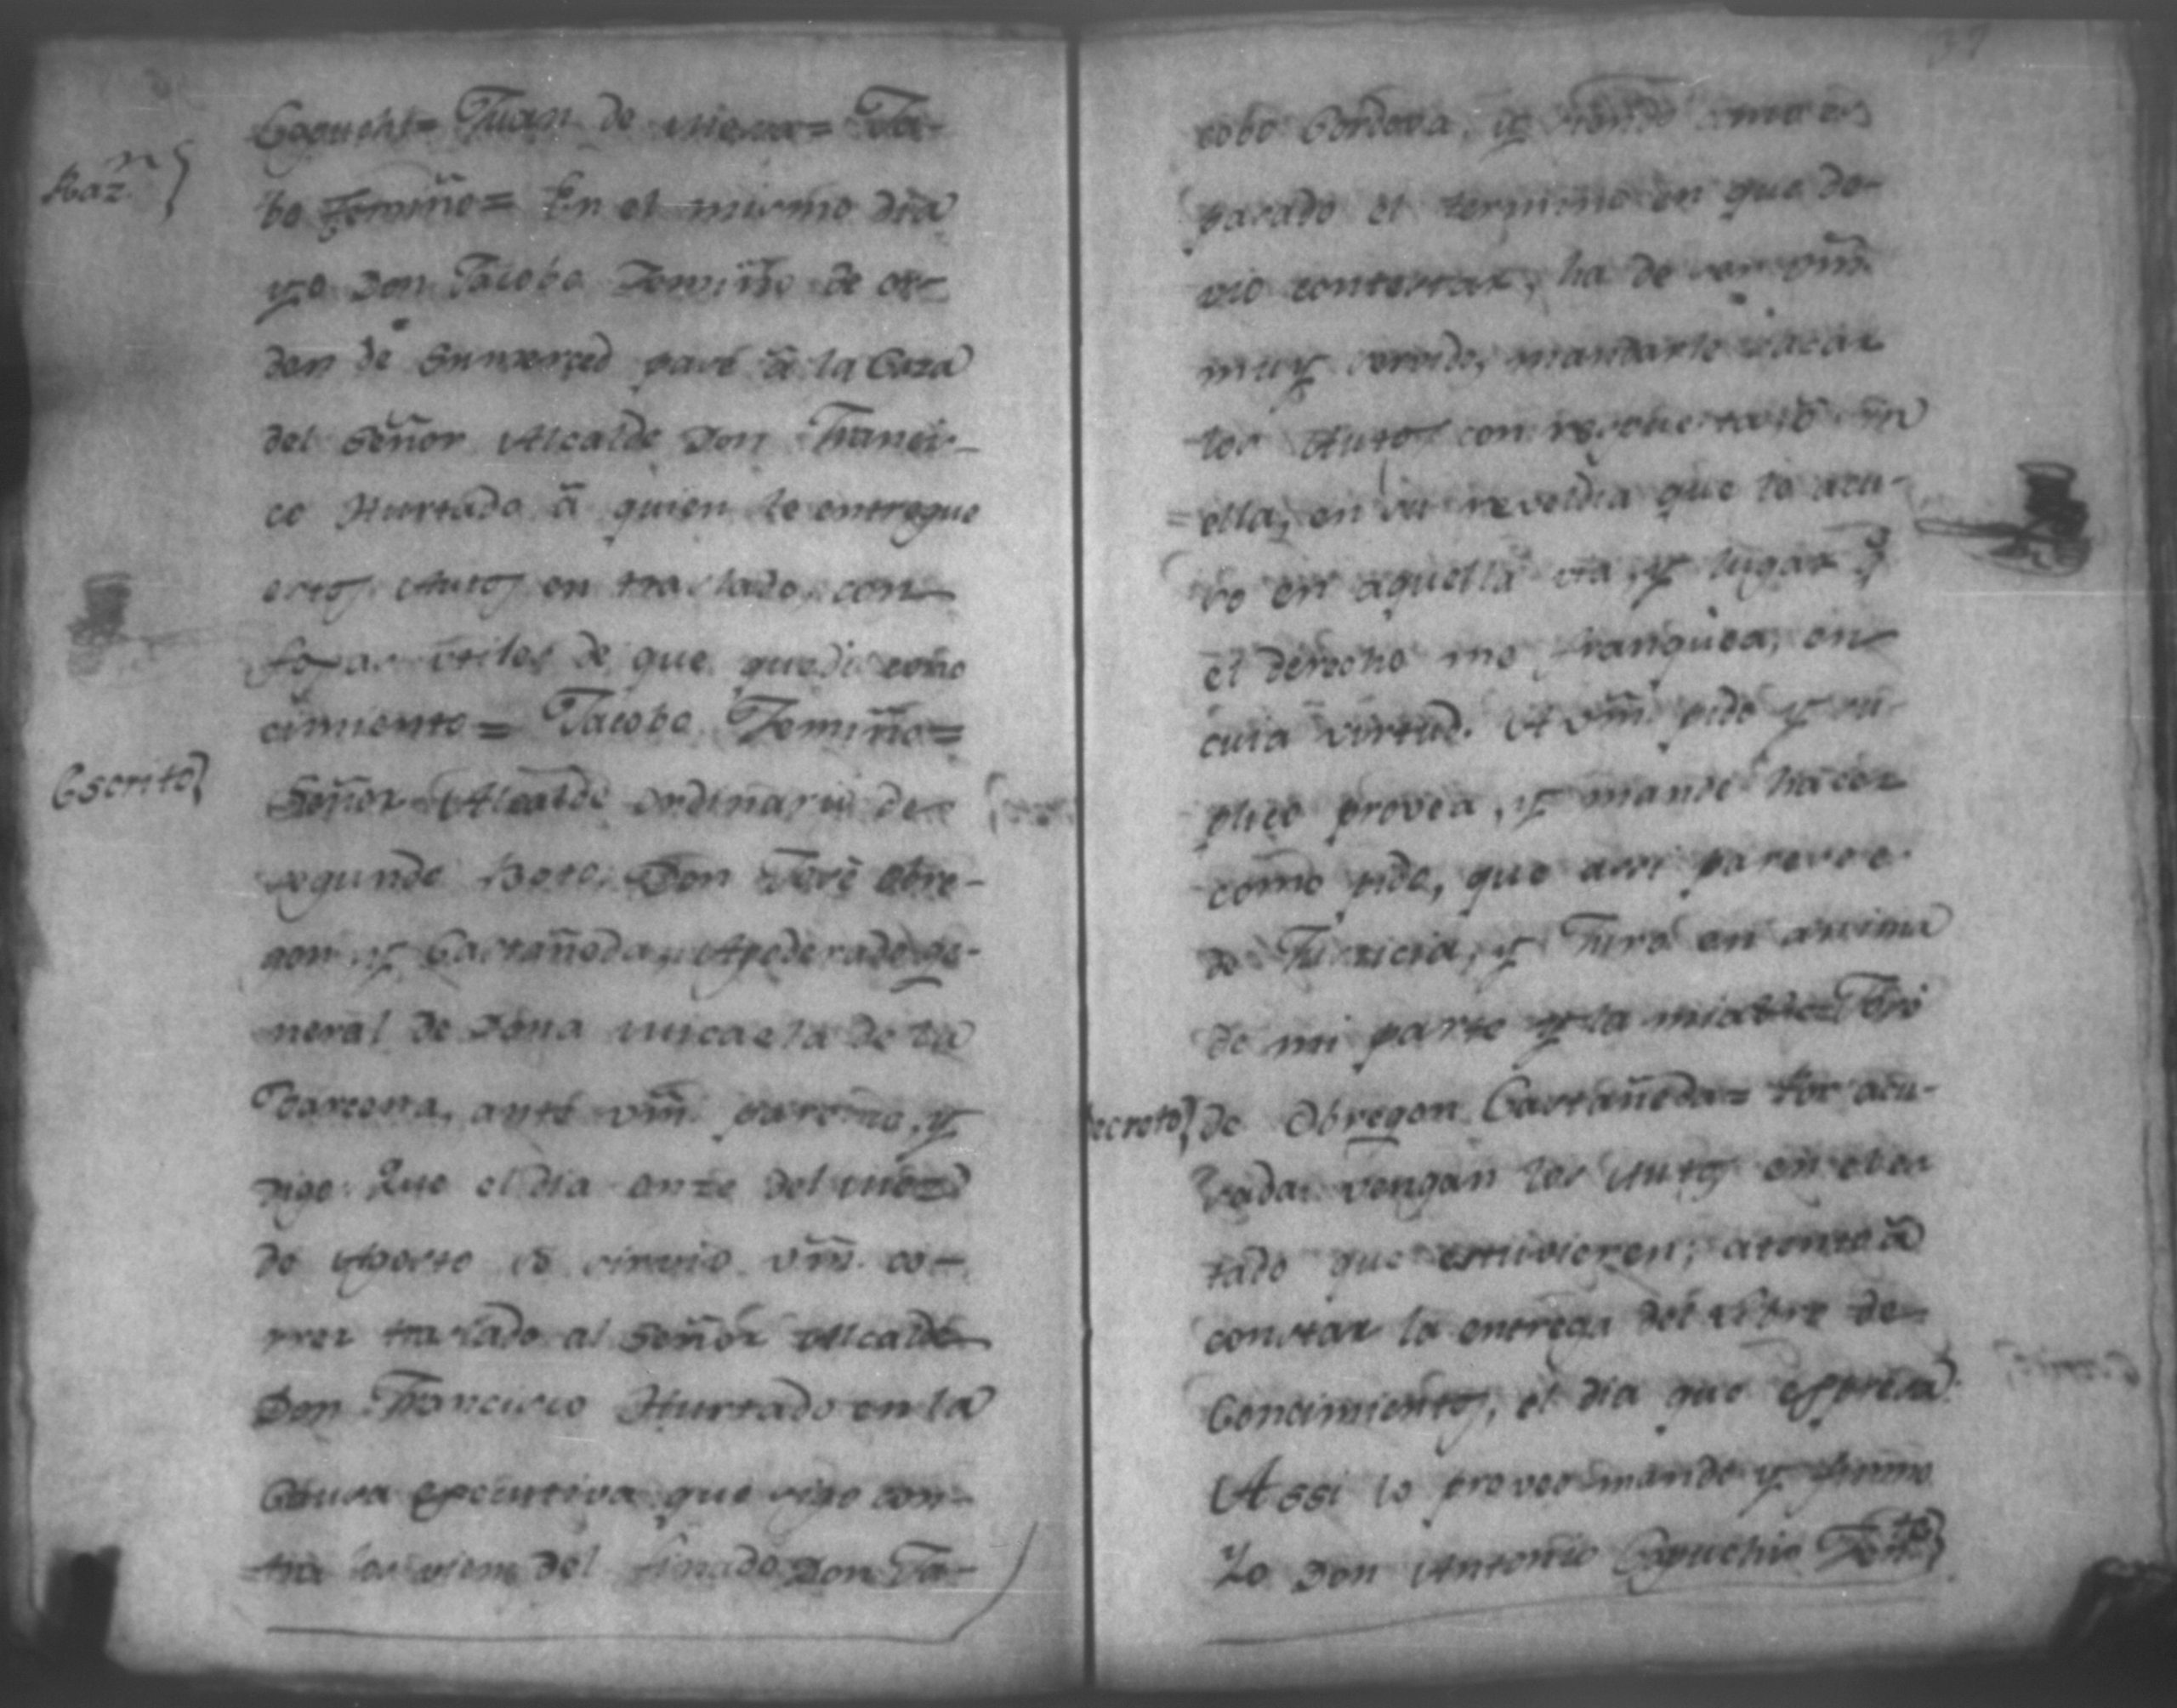 Capuchi= Juan de Mena= Ja-
Raz.n}
bo Femiño= En el mismo dia
yo Don Jacobo Femiño de or-
den de Sumerced pasé â la Caza
del Señor Alcalde Don Francis-
co Hurtado â quien le entregue
estos Autos en traslado, con
fojas utiles de que que dio cono
cimiento= Jacobo Femiño=
Escrito}
Señor Alcalde ordinario de
segundo Boto. Don José Obre-
gon y Castañeda, Apoderado ge-
neral de Doña Micaela de la
Barzena, ante Vm̃. paresco, y
digo: Que el dia onze del mes
de Agosto se sirvio Vm̃. co-
rrer traslado al Señor Alcalde
Don Francisco Hurtado en la
Causa executiva que sigo con-
tra los vienes del finado Don Ja-
37
cobo Cordova, y siendo
pasado el termino en que de-
vio contestar, ha de ser Vm̃.
muy servido, mandarle sacar
los Autos con respuesta ô sin
ella, en su reveldia que le acu-
so en aquella via, y lugar q̃
el derecho me franquea, en
cuia virtud. A Vm̃. pido y su-
plico provea, y mande hacer
como pido, que assi parese
de Justicia, y Juro en anima
de mi parte y la mia José
ecreto} de Obregon Castañeda= Por acu-
sada: vengan los Autos en el es
tado que estuvieren; atento â
constar la entrega del Libro de
Conoimientos, el dia que expresa
Assi lo proveo mando y firmo
Yo Don Antonio Capuchio